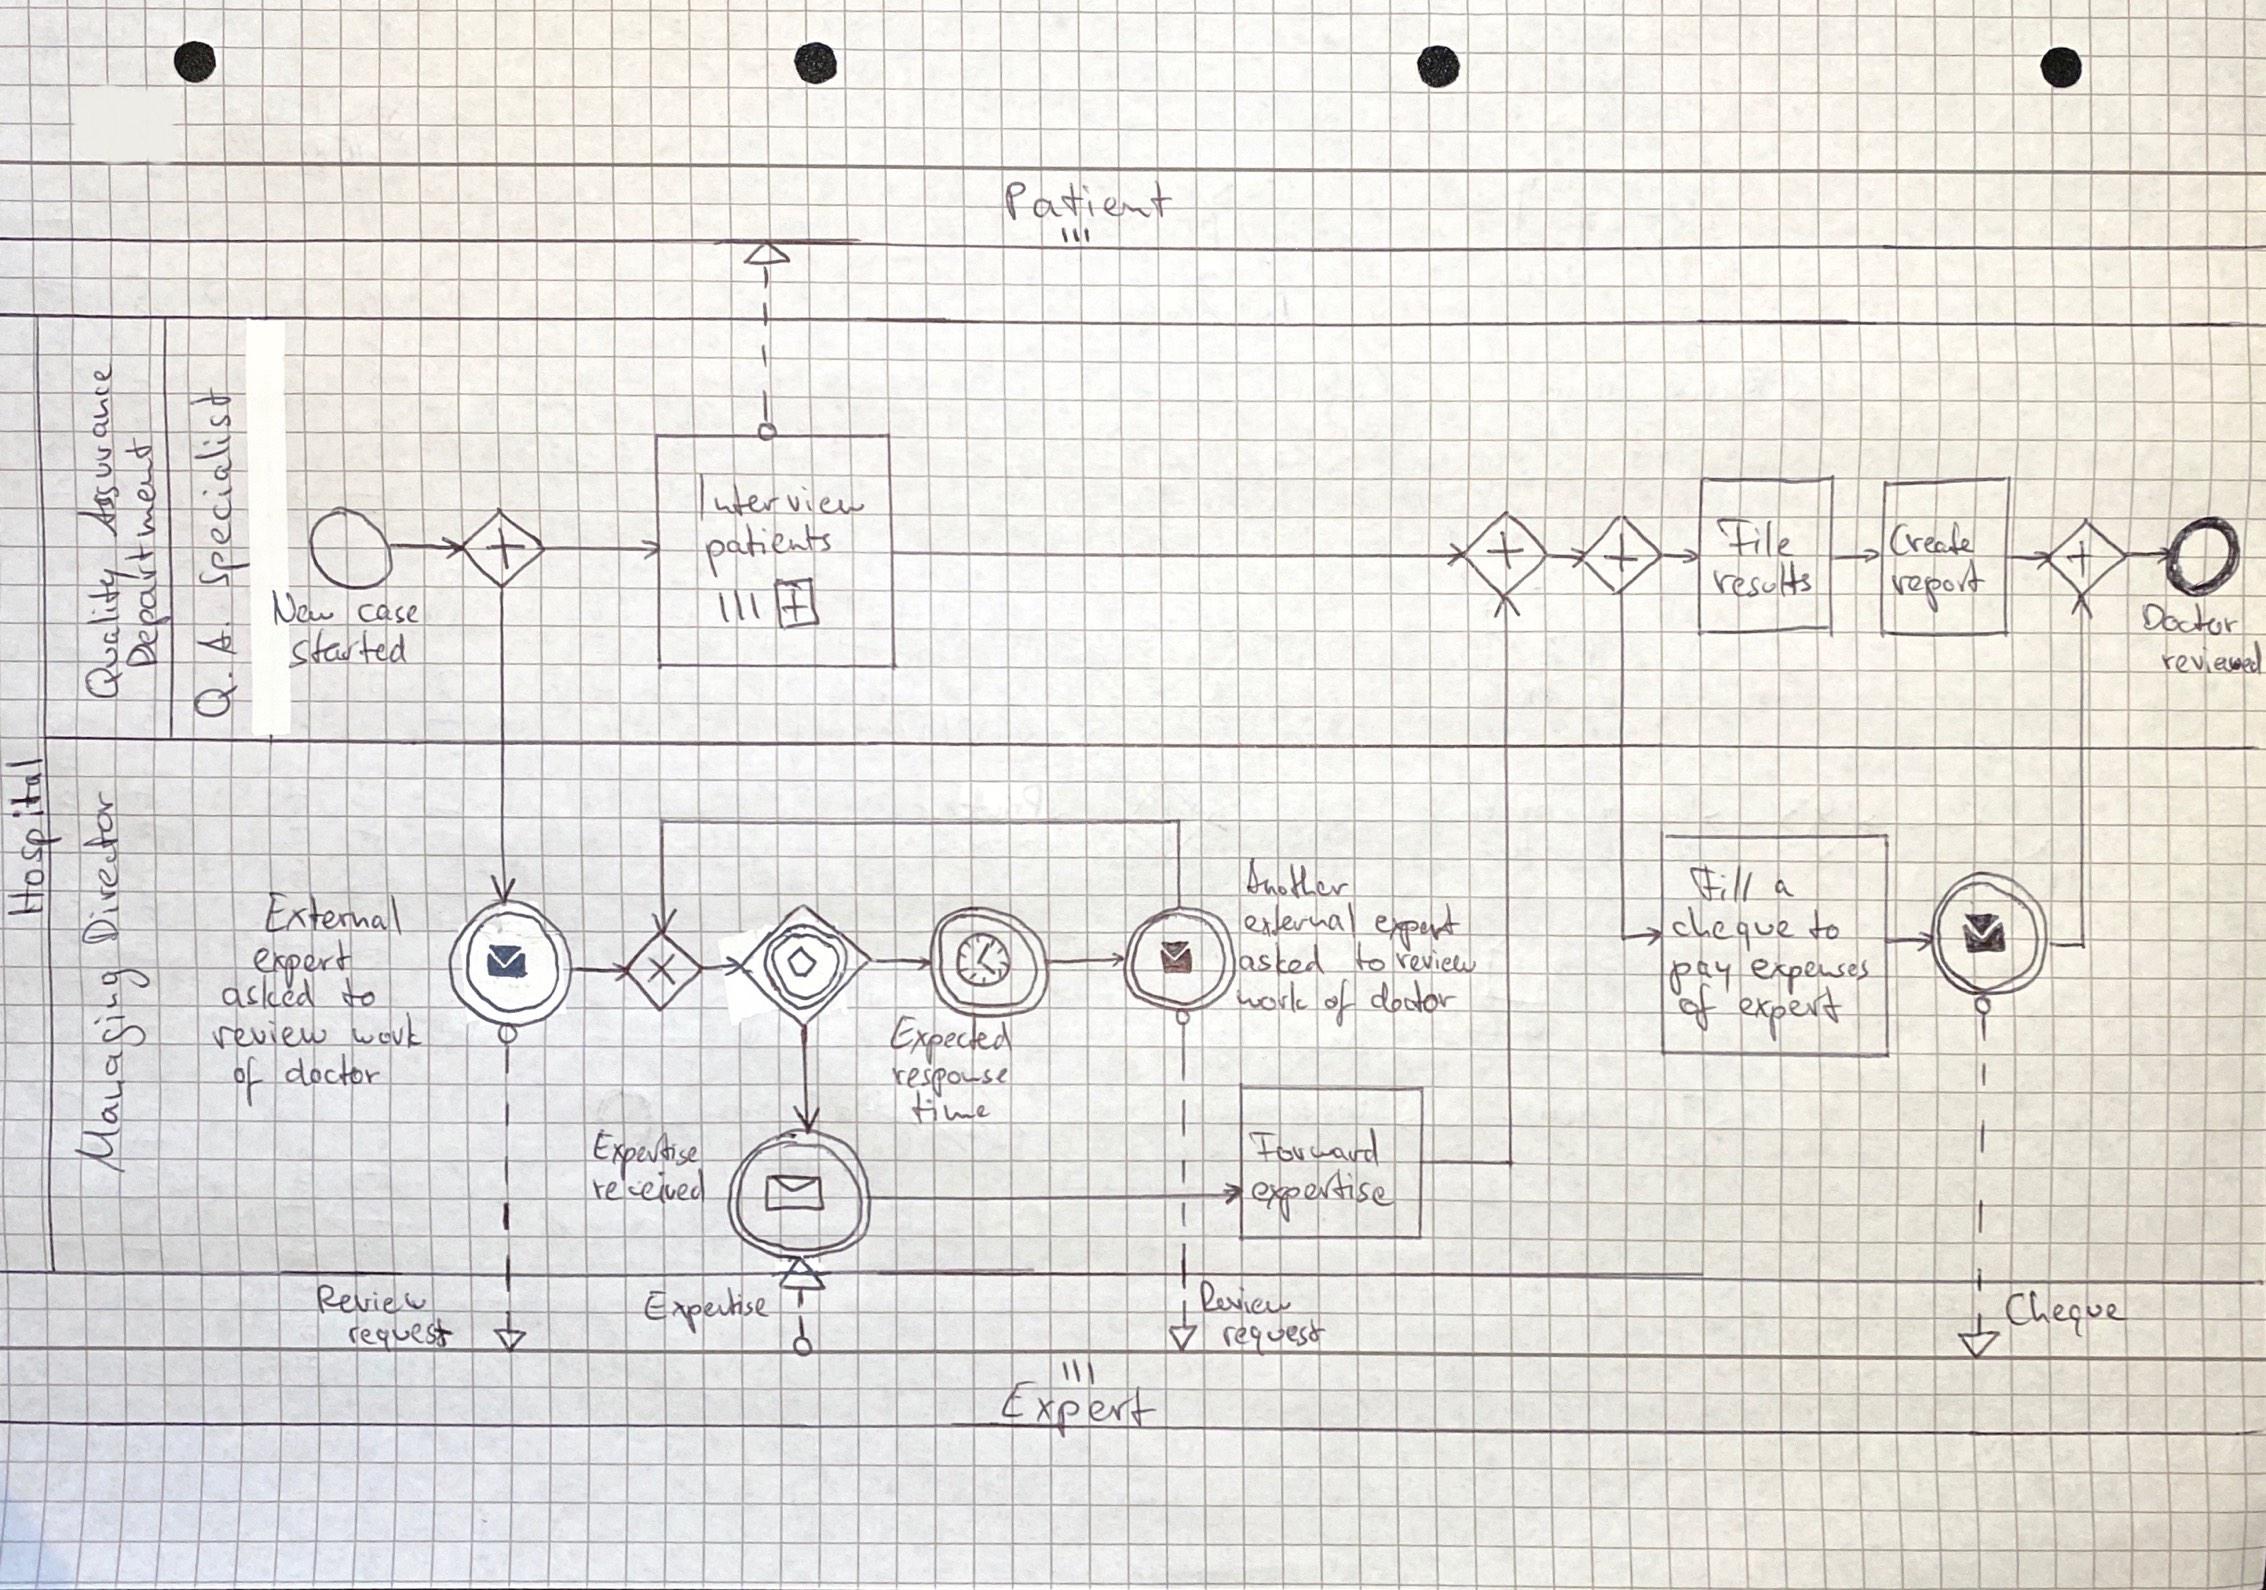 Patient
Quality Assurance
Department
Q. A. Specialist
New case
started
Interview
patients
File
results
Create
report
Doctor
reviewed
Hospital
Managing Director
External
expert
asked to
review work
of doctor
Expected
response
time
Another
external expert
asked to review
work of doctor
Fill a
cheque to
pay expenses
of expert
Expertise
received
Forward
expertise
Review
request
Expertise
Review
request
Cheque
Expert